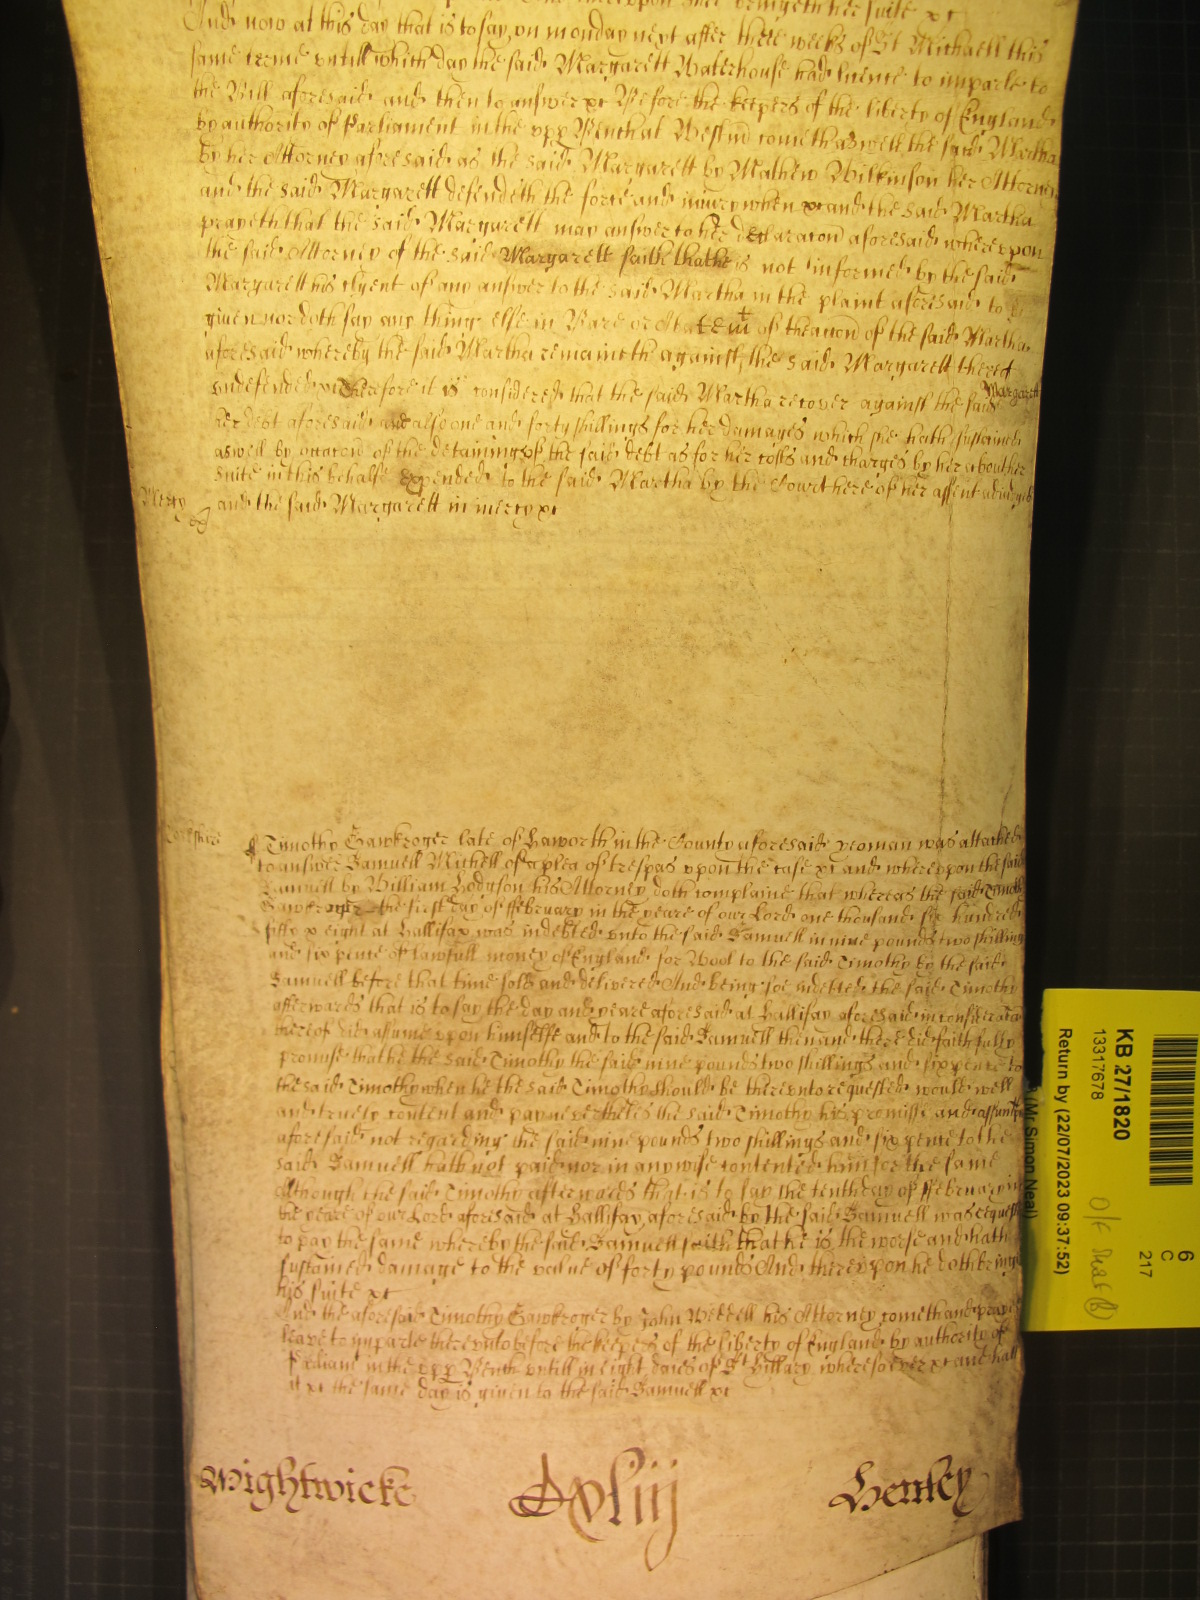 And now at this day that is to say, on monday next after three weeks of St Michaell this
same terme untill which day the said Margarett Waterhouse had licence to imparle to
the Bill aforesaid and then to answer xc Before the keepers of the liberty of England
by authority of Parliament in the upp Bench at Westm cometh aswell the said Martha
by her Attorney aforesaid as the said Margarett by Mathew Wilkinson her Attorney
and the said Margarett defendeth the force and iniury when xc and the said Martha
prayeth that the said Margarett may answer to her declaracon aforesaid whereupon
the said Attorney of the said Margarett saith that he is not informed by the said
Margarett his clyent of any answer to the said Martha in the plaint aforesaid to be
given nor doth say any thing else in of the accon of the said Martha
aforesaid whereby the said Martha remaineth against the said Margarett thereof
undefended xc Therefore it is considered that the said Martha recover against the said Margarett
her debt aforesaid and also one and forty shillings for her damages which she hath sustained
aswell by occacon of the detaining of the said debt as for her costs and charges by her about her
suite in this behalfe expended to the said Martha by the Court here of her assent adiudged
Mercy and the said Margarett in mercy xc
Yorkshire Timothy Gawkroger late of Haworth in the County aforesaid yeoman was attached
to answer Samuell Michell of a plea of trespas upon the case xc and whereupon the said
Samuell by William Hodgson his Attorney doth complaine that whereas the said Timothy
Gawkroger the first day of ffebruary in the yeare of our Lord one thousand six hundred
fifty & eight at Hallifax was indebted unto the said Samuell in nine pounds two shillings
and six pence of lawfull money of England for Wool to the said Timothy by the said
Samuell before that time sold and delivered And being soe indetted the said Timothy
afterwards that is to say the day and yeare aforesaid at Hallifax aforesaid in consideracon
thereof did assume upon himselfe and to the said Samuell then and there did faithfully
promise that he the said Timothy the said nine pounds two shillings and six pence to
the said Timothy when he the said Timothy should be thereunto requested would well
and truely content and pay neverthelesse the said Timothy his promisse and assumpcon
aforesaid not regarding the said nine pounds two shillings and six pence to the
said Samuell hath not paid nor in any wise contented him for the same
Although the said Timothy afterwards that is to say the tenth day of ffebruary in
the yeare of our Lord aforesaid at Hallifax aforesaid by the said Samuell was requested
to pay the same whereby the said Samuell saith that he is the worse and hath
sustained damage to the value of forty pounds And thereupon he doth bring
his suite xc
And the aforesaid Timothy Gawkroger by John his Attorney cometh and prayes
leave to imparle thereunto before the keepers of the liberty of England by authority of
Parliam in the upp Bench untill in eight daies of St Hillary wheresoever xc and hath
it xc the same day is given to the said Samuell xc
Wightwicke xliij Henley
KB 27/1820
13317678
Return by (22/07/2023 09:37:52)
(Mr Simon Neal)
6
C
217